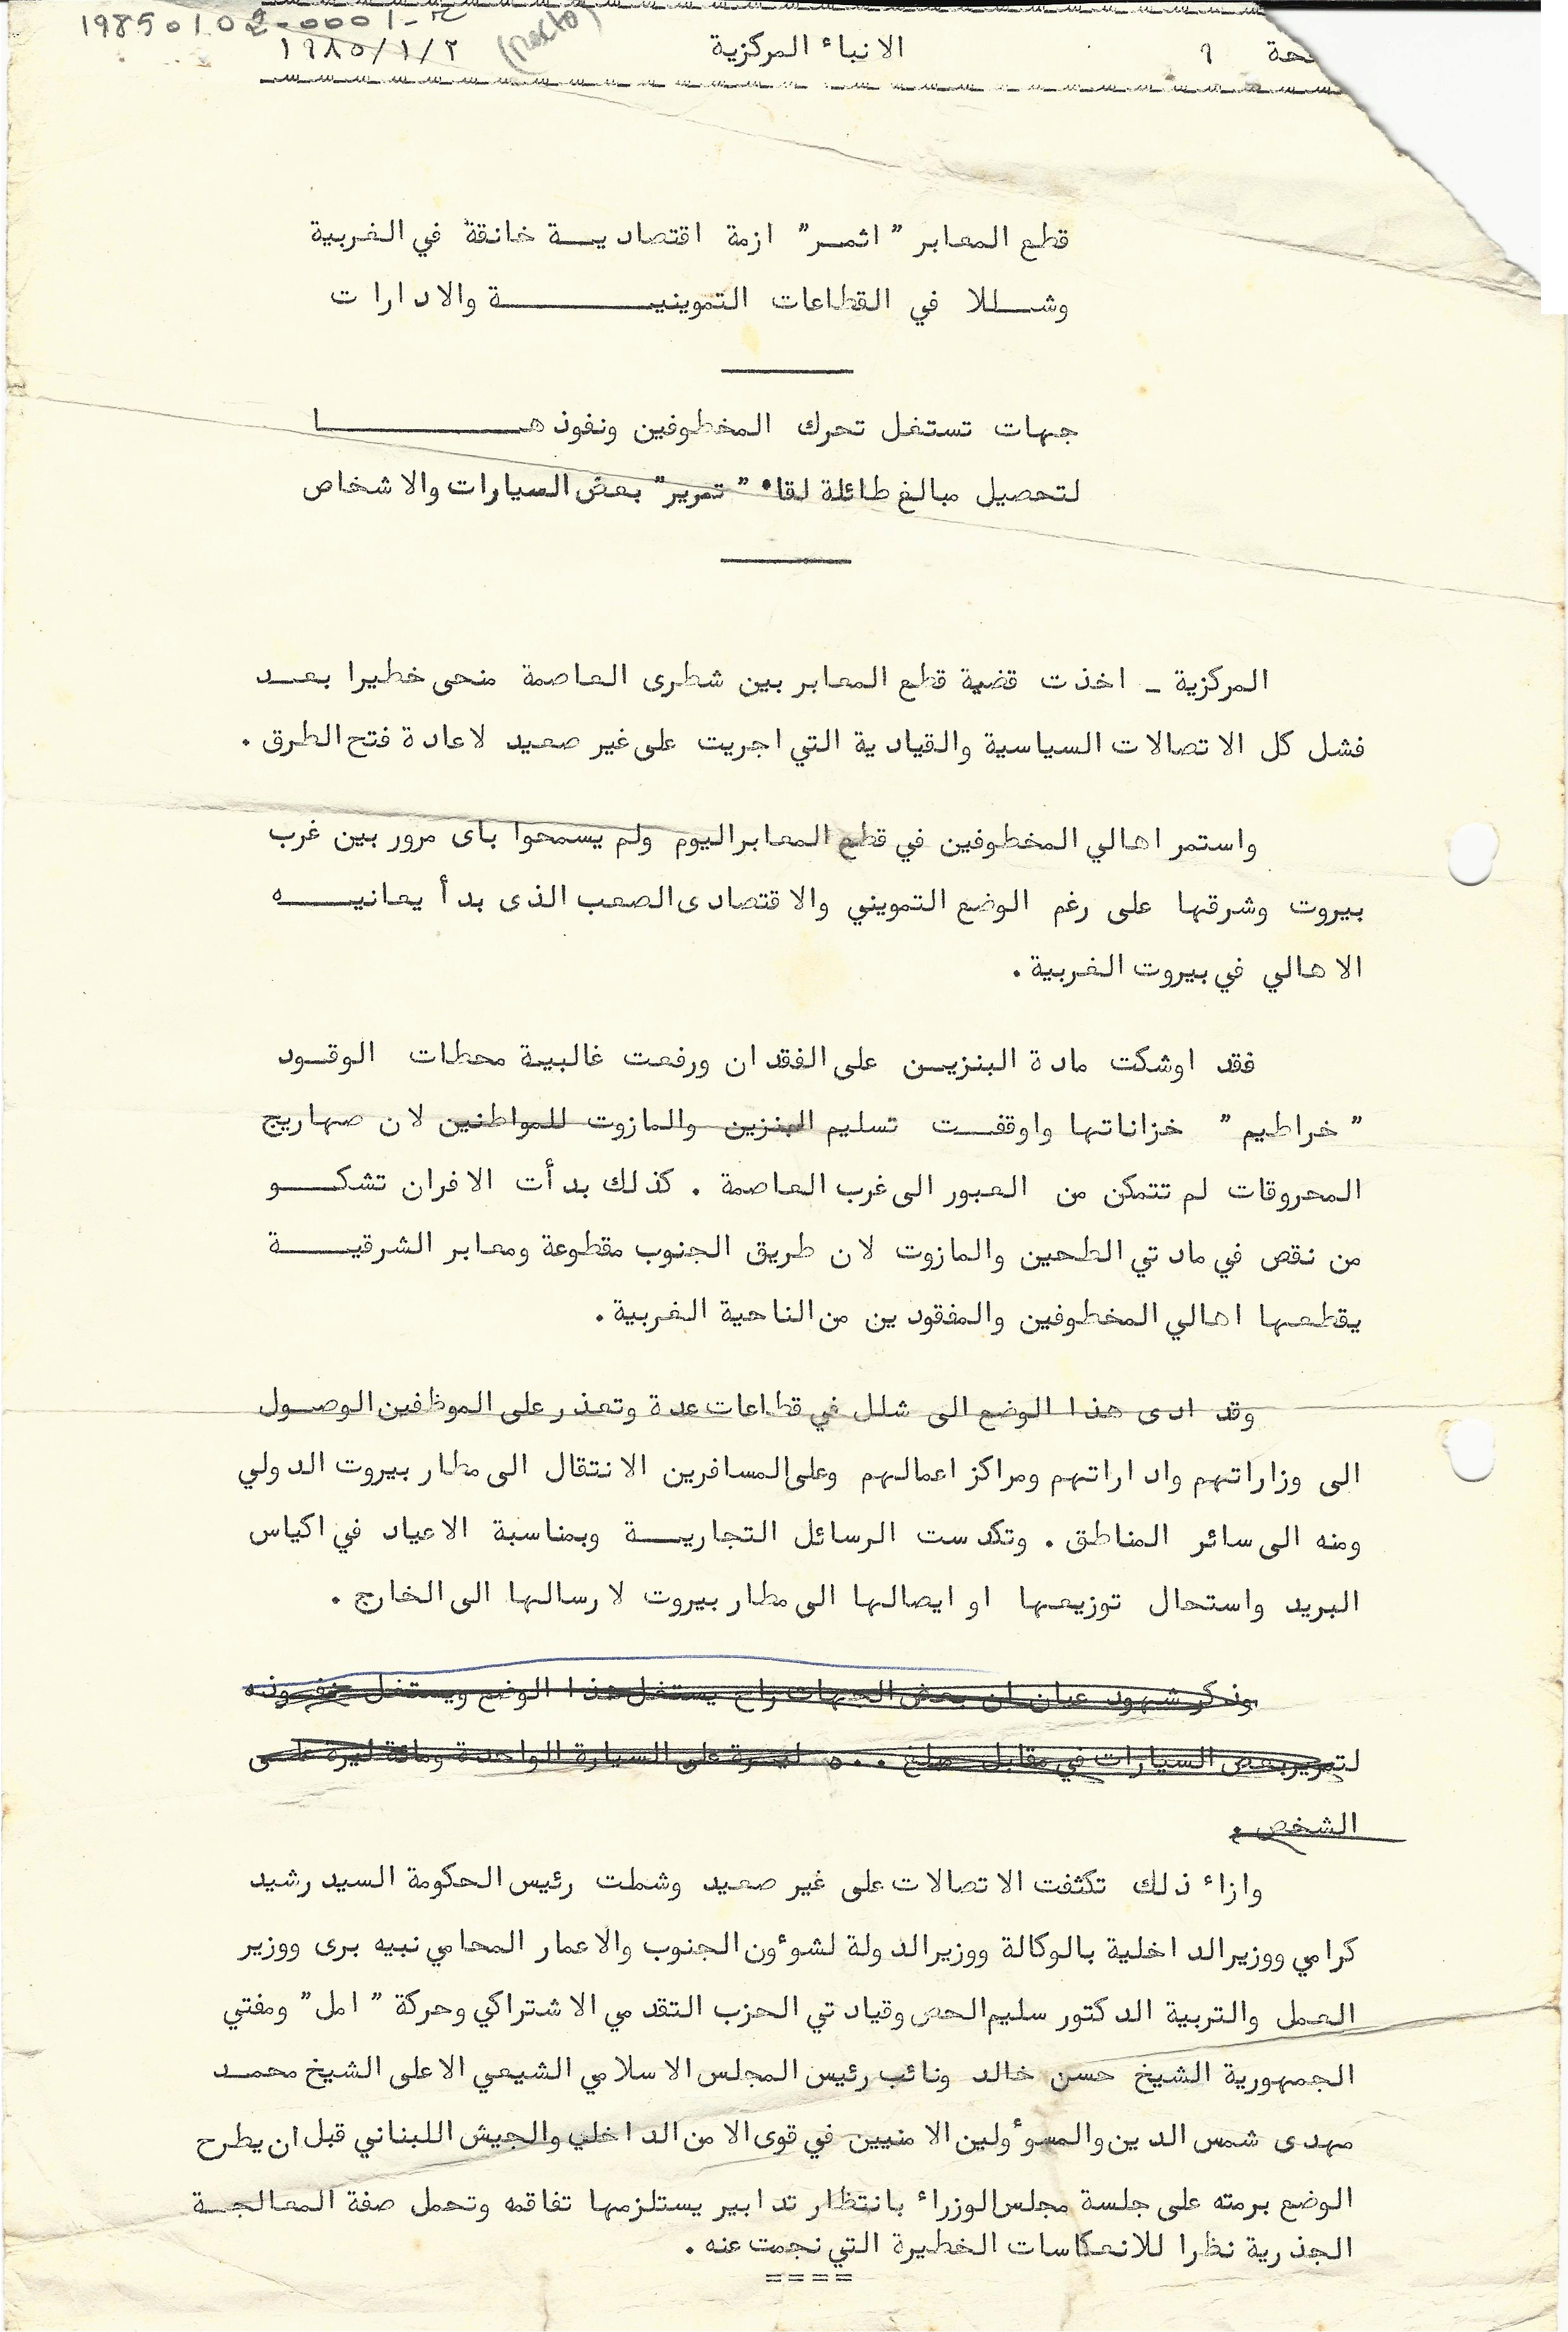 19850102-0001-
(recto)
حة ٩ الانباء المركزية ١٩٨٥/١/٢
قطع المعابر " اثمر" ازمة اقتصادية خانقة في الغربية
وشللا في القطاعات التموينية والادارات
جهات تستغل تحرك المخطوفين ونفوذها
لتحصيل مبالغ طائلة لقاء " تمرير" بعض السيارات والاشخاص
المركزية ـ اخذت قضية قطع المعابر بين شطرى العاصمة منحى خطيرا بعد
فشل كل الاتصالات السياسية والقيادية التي اجريت على غير صعيد لاعادة فتح الطرق .
واستمر اهالي المخطوفين في قطع المعابر اليوم ولم يسمحوا باى مرور بين غرب
بيروت وشرقها على رغم الوضع التمويني والاقتصادى الصعب الذى بدأ يعانيه
الاهالي في بيروت الغربية .
فقد اوشكت مادة البنزين على الفقدان ورفعت غالبية محطات الوقود
" خراطيم " خزاناتها واوقفت تسليم البنزين والمازوت للمواطنين لان صهاريج
المحروقات لم تتمكن من العبور الى غرب العاصمة . كذلك بدأت الافران تشكو
من نقص في مادتي الطحين والمازوت لان طريق الجنوب مقطوعة ومعابر الشرقية
يقطعها اهالي المخطوفين والمفقودين من الناحية الغربية .
وقد ادى هذا الوضع الى شلل في قطاعات عدة وتعذر على الموظفين الوصول
الى وزاراتهم واداراتهم ومراكز اعمالهم وعلى المسافرين الانتقال الى مطار بيروت الدولي
ومنه الى سائر المناطق . وتكدست الرسائل التجارية وبمناسبة الاعياد في اكياس
البريد واستحال توزيعها او ايصالها الى مطار بيروت لارسالها الى الخارج .
وذكر شهود عيان ان بعض الجهات راح يستغل هذا الوضع ويستغل نفوذه
لتمرير بعض السيارات في مقابل مبلغ ٥٠٠ ليرة على السيارة الواحدة ومائة ليرة على
الشخص .
وازاء ذلك تكثفت الاتصالات على غير صعيد وشملت رئيس الحكومة السيد رشيد
كرامي ووزير الداخلية بالوكالة ووزير الدولة لشوءون الجنوب والاعمار المحامي نبيه برى ووزير
العمل والتربية الدكتور سليم الحص وقيادتي الحزب التقدمي الاشتراكي وحركة " امل" ومفتي
الجمهورية الشيخ حسن خالد ونائب رئيس المجلس الاسلامي الشيعي الاعلى الشيخ محمد
مهدى شمس الدين والمسوءولين الامنيين في قوى الامن الداخلي والجيش اللبناني قبل ان يطرح
الوضع برمته على جلسة مجلس الوزراء بانتظار تدابير يستلزمها تفاقمه وتحمل صفة المعالجة
الجذرية نظرا للانعكاسات الخطيرة التي نجمت عنه .
====